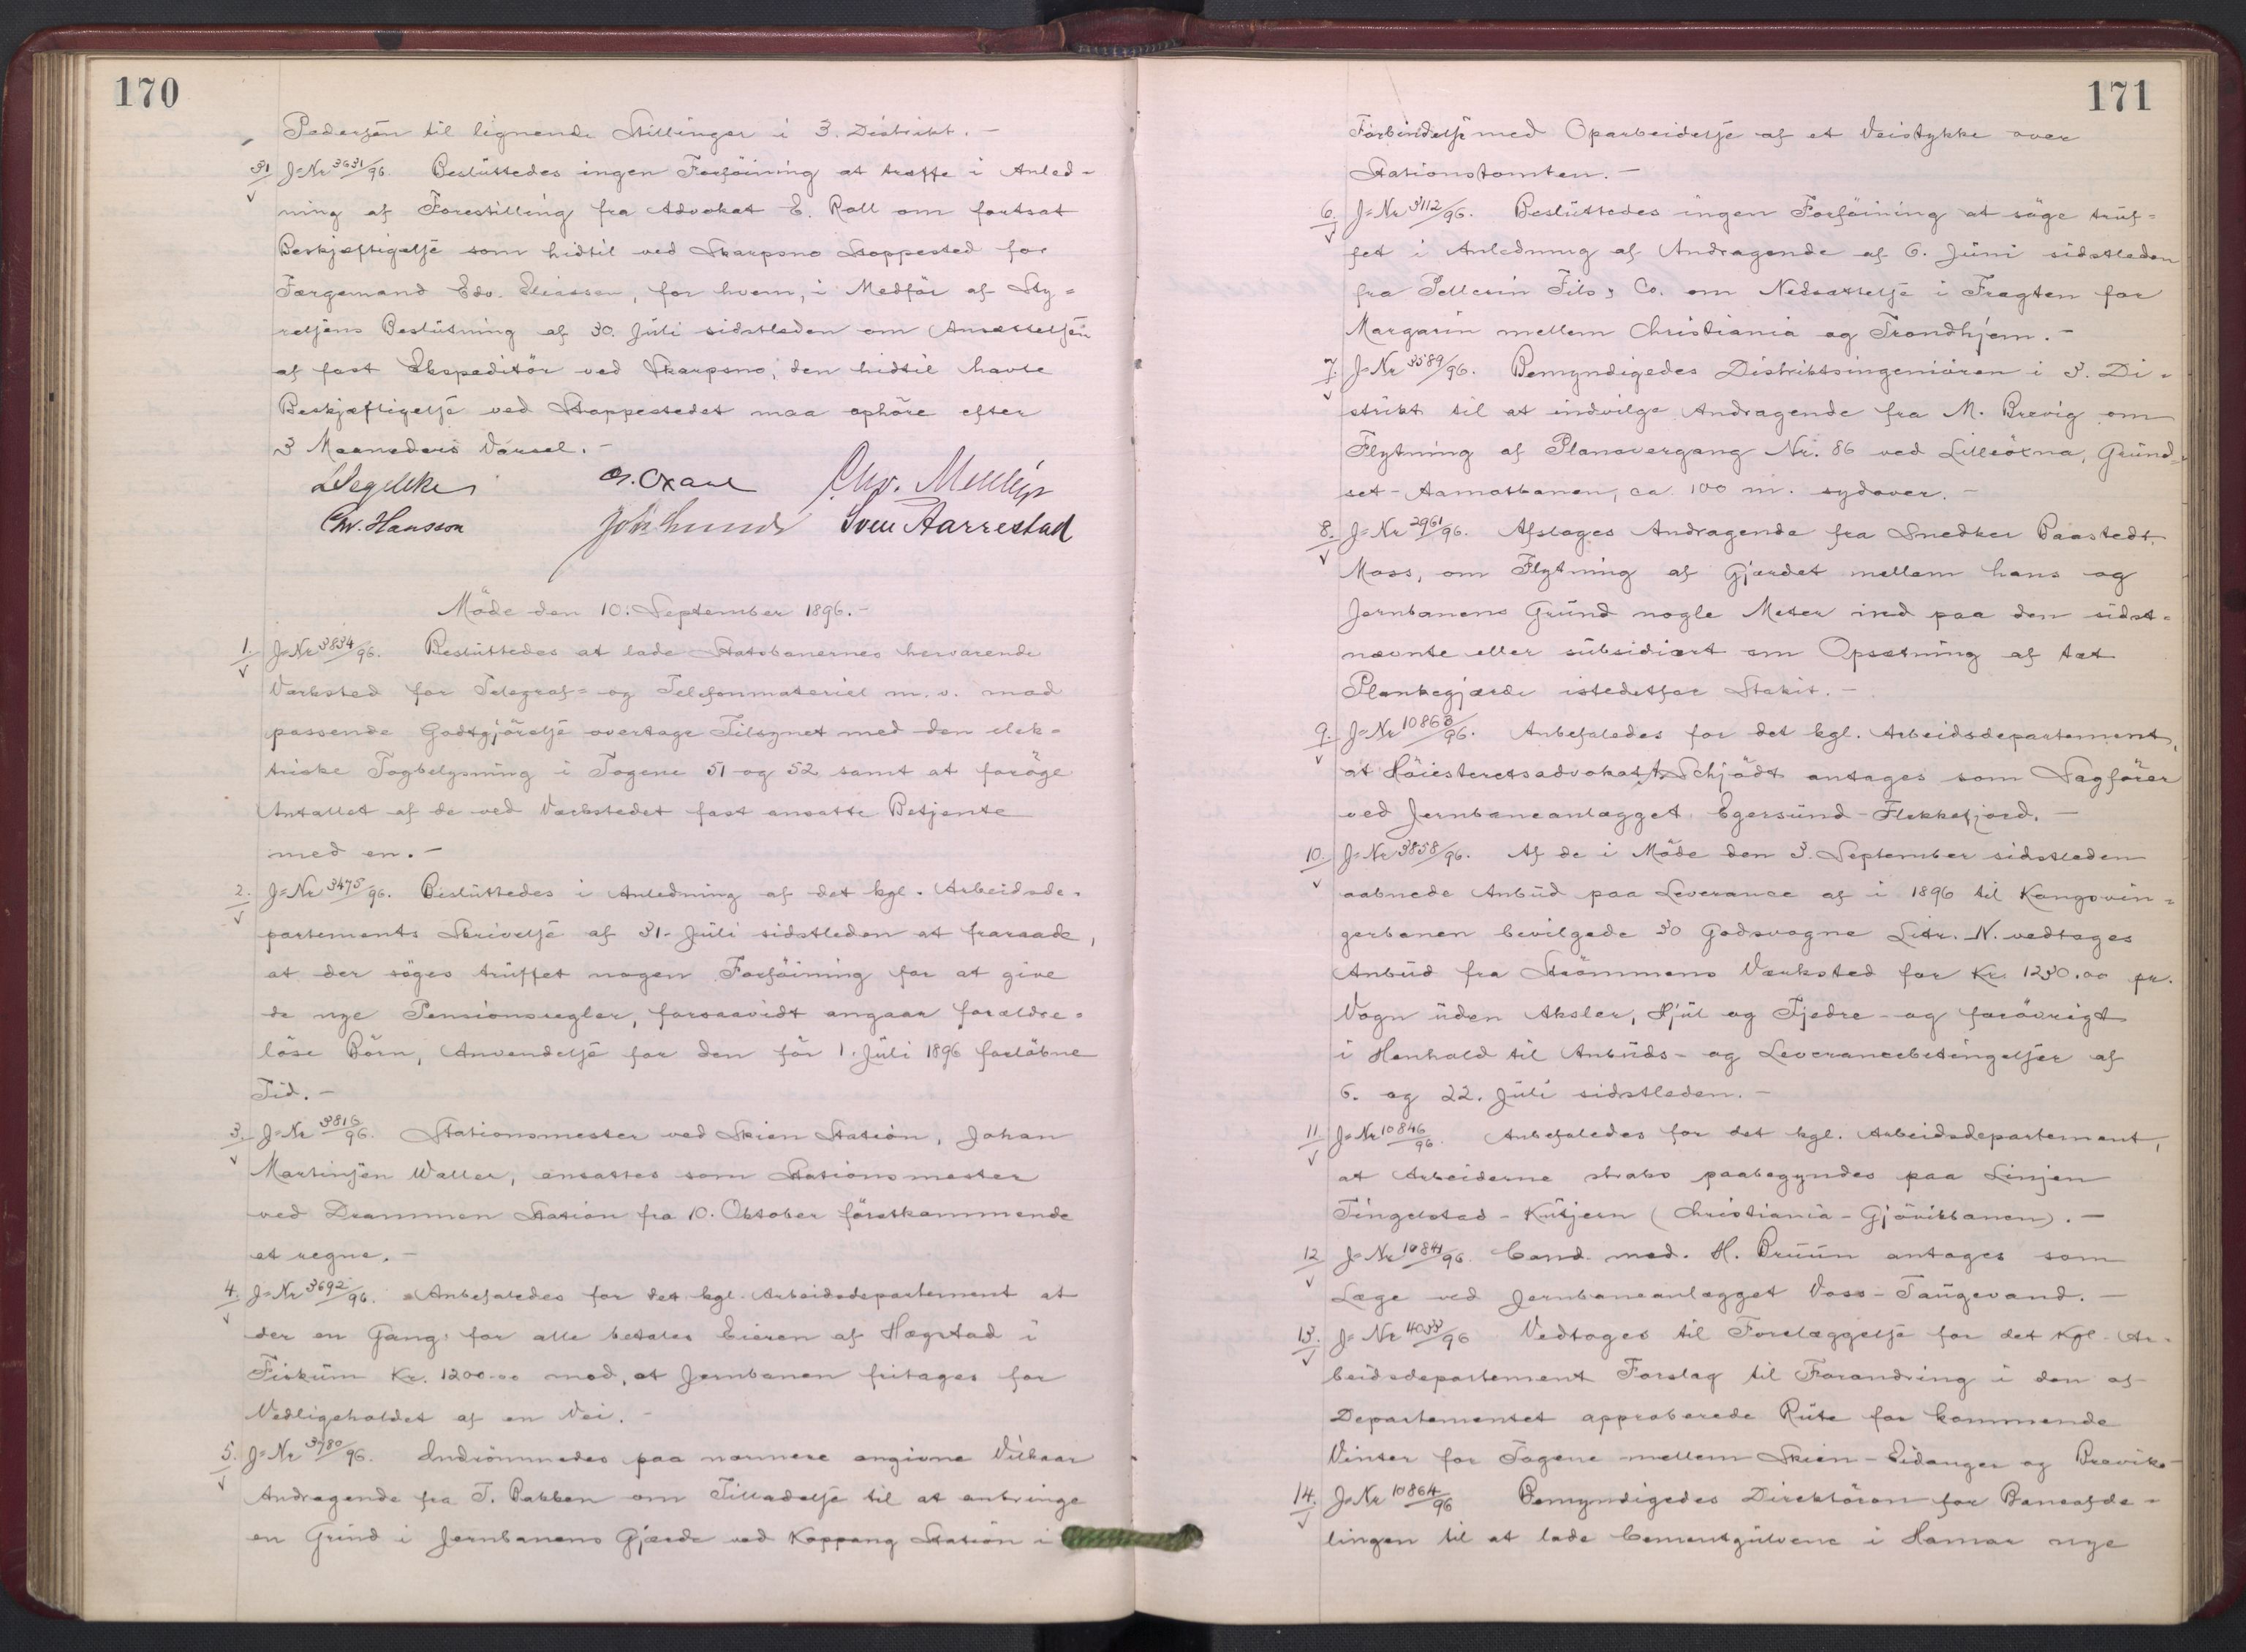 170
Pedersen til lignende Stillinger i 3. Distrikt. -
31 J=Nr 3631/96. Besluttedes ingen Forföining at træffe i Anled=
ning af Forestilling fra Advokat E. Roll om fortsat
Beskjæftigelse som hidtil ved Skarpsno Stoppested for
Færgemand Edv. Eliassen, for hvem, i Medför af Sty=
relsens Beslutning af 30. Juli sidstleden om Ansættelsen
af fast Ekspeditör ved Skarpsno, den hidtil havte
Beskjæftigelse ved Stoppestedet maa ophöre efter
3 Maaneders Varsel. -
Chr. Hansson Joh. Lund Sven Aarrestad
Möde den 10. September 1896. -
1. J=Nr 3834/96. Besluttedes at lade Statsbanernes herværende
Værksted for Telegraf= og Telefonmateriel m. v. mod
passende Godtgjörelse overtage Tilsynet med den elek=
triske Togbelysning i Togene 51 og 52 samt at foröge
Antallet af de ved Værkstedet fast ansatte Betjente
med en. -
2. J=Nr 3475/96. Besluttedes i Anledning af det kgl. Arbeidsde=
partements Skrivelse af 31. Juli sidstleden at fraraade,
at der söges truffet nogen Forföining for at give
de nye Pensionsregler, forsaavidt angaar forældre=
löse Börn, Anvendelse for den för 1. Juli 1896 forlöbne
Tid. -
3. J=Nr 3816/96. Stationsmester ved Skien Station, Johan
Martinsen Waller, ansattes som Stationsmester
ved Drammen Station fra 10. Oktober förstkommende
at regne. -
4. J=Nr 3692/96. Anbefaledes for det kgl. Arbeidsdepartement at
der en Gang for alle betales Eieren af Hægstad i
Fiskum Kr. 1200.00 mod, at Jernbanen fritages for
Vedligeholdet af en Vei. -
5. J=Nr 3780/96. Indrömmedes paa nærmere angivne Vilkaar
Andragende fra T. Bakken om Tilladelse til at anbringe
en Grind i Jernbanens Gjærde ved Koppang Station i
171
Forbindelse med Oparbeidelse af et Veistykke over
Stationstomten. -
6. J=Nr 3112/96. Besluttedes ingen Forföining at söge truf=
fet i Anledning af Andragende af 6. Juni sidstleden
fra Pellerin Fils & Co. om Nedsættelse i Fragten for
Margarin mellem Christiania og Trondhjem. -
7. J=Nr 3589/96. Bemyndigedes Distriktsingeniören i 3. Di=
strikt til at indvilge Andragende fra M. Brevig om
Flytning af Planovergang Nr. 86 ved Lilleöxna, Grund=
set-Aamotbanen, ca. 100 m. sydover. -
8. J=Nr 2961/96. Afsloges Andragende fra Snedker Baastedt,
Moss, om Flytning af Gjærdet mellem hans og
Jernbanens Grund nogle Meter ind paa den sidst=
nævnte eller subsidiært om Opsætning af tæt
Plankegjærde istedetfor Stakit. -
9. J=Nr 10863/96. Anbefaledes for det kgl. Arbeidsdepartement,
at Höiesteretsadvokat A. Schjödt antages som Sagförer
ved Jernbaneanlægget Egersund-Flekkefjord. -
10. J=Nr 3858/96. Af de i Möde den 3. September sidstleden
aabnede Anbud paa Leverance af i 1896 til Kongsvin=
gerbanen bevilgede 30 Godsvogne Litr. N. vedtoges
Anbud fra Strömmens Værksted for Kr. 1230.00 pr.
Vogn uden Aksler, Hjul og Fjedre - og forövrigt
i Henhold til Anbuds- og Leverancebetingelser af
6. og 22. Juli sidstleden. -
11 J=Nr 10846/96. Anbefaledes for det kgl. Arbeidsdepartement,
at Arbeiderne straks paabegyndes paa Linjen
Tingelstad - Kutjern (Christiania - Gjövikbanen). -
12 J=Nr 10841/96. Cand. med. H. Bruun antages som
Læge ved Jernbaneanlægget Voss-Taugevand. -
13. J=Nr 4033/96 Vedtoges til Forelæggelse for det Kgl. Ar=
beidsdepartement Forslag til Forandring i den af
Departementet approberede Rute for kommende
Vinter for Togene mellem Skien-Eidanger og Brevik. -
14. J=Nr 10864/96 Bemyndigedes Direktören for Baneafde=
lingen til at lade Cementgulvene i Hamar nye